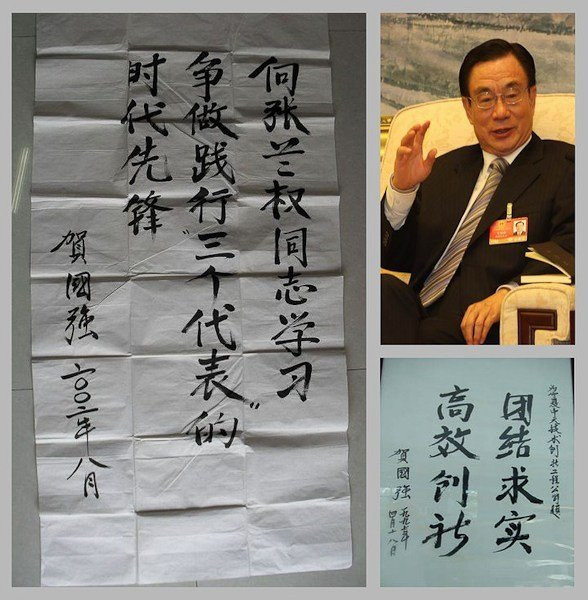 向张兰权同志学习
争做践行"三个代表"的
时代先锋
賀國強
二〇〇二年八月
技术创新工程公司题
团结求实
高效创新
賀國強
一九九七年
四月十八日